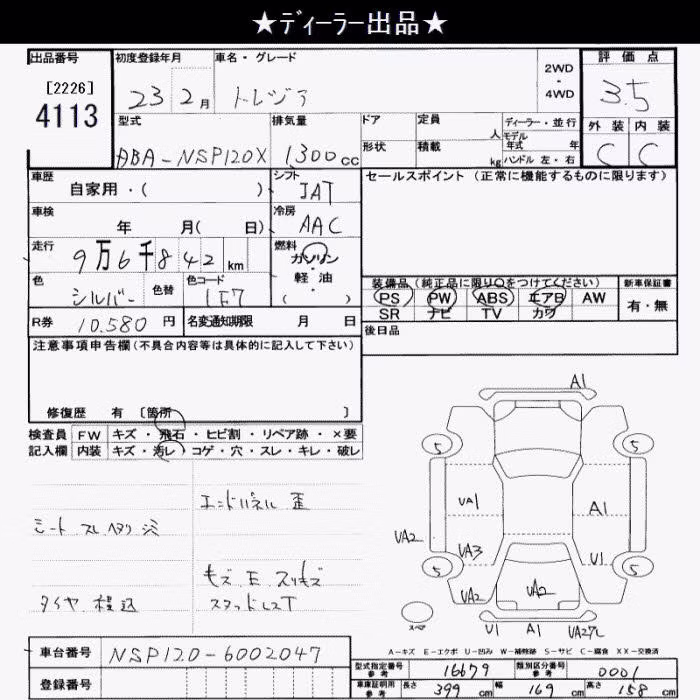 ★ディーラー出品★
出品番号
[2226]
4113
初度登録年月
23年2月
車名・グレード
トレジア
2WD
・
4WD
評価点
3.5
外装 内装
C C
型式
DBA-NSP120X
排気量
1300cc
ドア
定員
人
形状
積載
kg
ディーラー・並行
モデル年式 年
ハンドル 左・右
車歴
自家用・( )
シフト
IAT
セールスポイント (正常に機能するものに限ります)
車検
年 月( 日)
冷房
AAC
走行
9万6千842km
燃料
ガソリン
・
軽油
( )
色
シルバー
色替
色コード
1F7
装備品(純正品に限り○をつけてください)
PS PW ABS エアB AW
SR ナビ TV カワ
新車保証書
有・無
R券
10.580円
名変通知期限 月 日
後日品
注意事項申告欄(不具合内容等は具体的に記入して下さい)
修復歴 有 [箇所 ]
検査員
記入欄
FW キズ・飛石・ヒビ割・リペア跡・×要
内装 キズ・汚レ・コゲ・穴・スレ・キレ・破レ
エンドパネル 歪
シート スレ ヘタリ
キズ E スリキズ
タイヤ 積込
A1
5
5
UA1
A1
UA2
UA3
U1
5
5
UA2
UA2
スペア
U1 A1 UA27L
A-キズ E-エクボ U-凹み W-補修跡 S-サビ C-腐食 XX-交換済
車台番号
NSP120-6002047
登録番号
型式指定番号
参考
16679
類別区分番号
参考
0001
車庫証明用
参考
長さ 399cm
幅 169cm
高さ 158cm